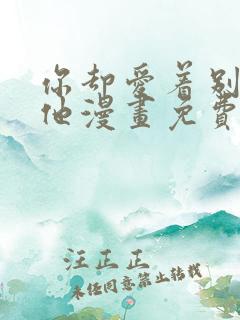 你却爱着别
他漫畫免費
汪正正
未经同意禁止转载